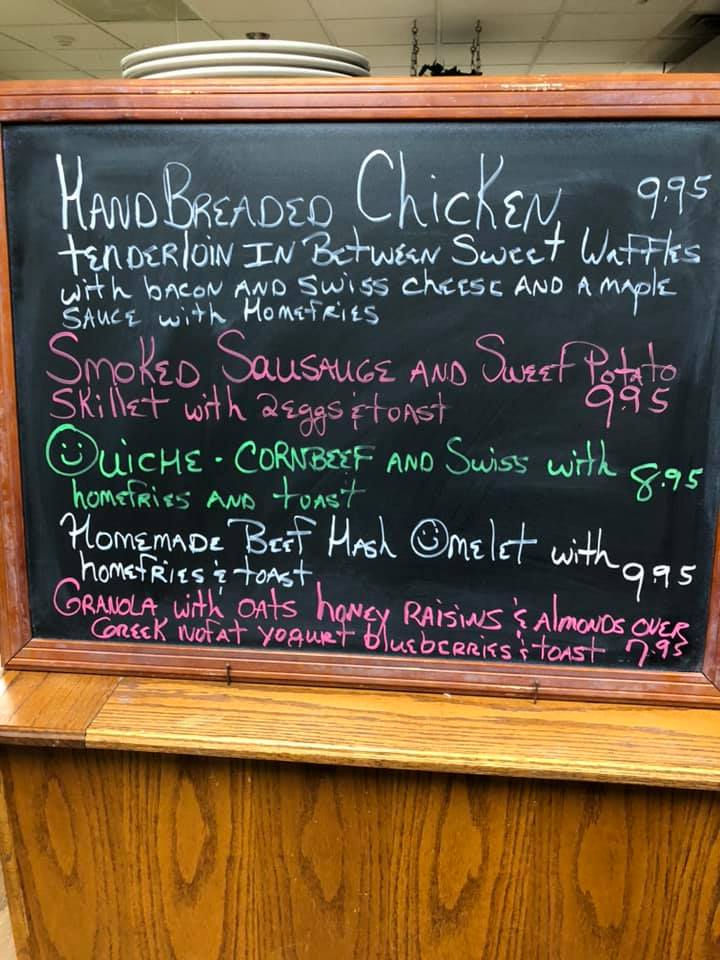 HAND BREADED ChicKEN 9.95
tENDERlOIN IN BEtWEEN SwEEt WaFFlEs
with bacon AND Swiss chEEsE AND A maplE
SAUCE with HomEfRiES
SmoKED SausAUGE AND SwEEt Potato
SKillEt with 2 eggs & tOAst 9.95
QuiCHE - CORNBEEF AND Swiss with 8.95
homEfriES AND tOAst
HomEMADE BEEf HAsh OmElEt with
homEfRiES & tOAst 9.95
GRANOLA with OAtS honEy RAisiNS & AlmoNDS OVER
GREEK NofAt yoguRt bluEbERRiES & tOAst 7.95